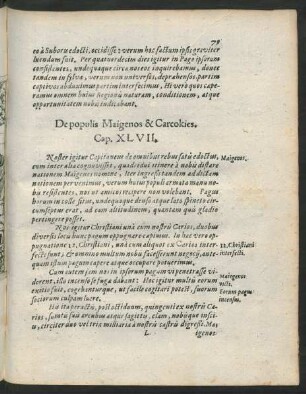 71
eo à Suboru edocti, accidisse: verum hoc factum ipsis graviter
luendum fuit. Per quatuordecim dies igitur in Pago ipsorum
considentes, undequaque circa nos eos inquirebamus, donec
tandem in sylva, verum non universos, deprehensos partim
captivos abduximus partim interfecimus. Hi vero quos cape-
ramus omnem huius Regionis naturam, conditionem, atque
opportunitatem nobis indicabant.
De populis Maigenos & Carcokies.
Cap. XLVII.
Noster igitur Capitaneus de omnibus rebus satis edoctus,
cum inter alia cognovisset, quatridui itinere à nobis distare
nationem Maigenos nomine, iter ingressi tandem ad dictam
nationem pervenimus, verum horum populi armata manu no-
bis resistentes, nos ut amicos recipere non volebant. Pagus
horum in colle situs, undequaque densis atque latis spinetis cir-
cumseptus erat, ad eam altitudinem, quantam quis gladio
pertingere possit.
Maigenos.
Nos igitur Christiani unà cum nostris Carios, duobus
diversis locis hunc pagum oppugnare capimus. In hac vero op-
pugnatione 12. Christiani, unà cum aliquot ex Carios inter-
fecti sunt; & ramen multum nobis facesserunt negocij, ante-
quam istorum pagum capere atque occupare poteramus.
12. Christiani
interfecti.
Cum autem jam nos in ipsorum pagum vi penetrasse vi-
derent, illo incenso se fuga dabant: Hoc igitur multis eorum
exitio fuit, cogebanturque, ut facile cogitari potest, suorum
sociorum culpam luere.
Maigenos
victi.
Eorum pagus
incensus.
His ita peractis, post octiduum, quingenti ex nostris Ca-
rios, sumtis suis arcubus atque sagittis, clam, nobisque insci-
is, circiter duo vel tria milliaria à nostris castris digressi, Ma-
L
igenos